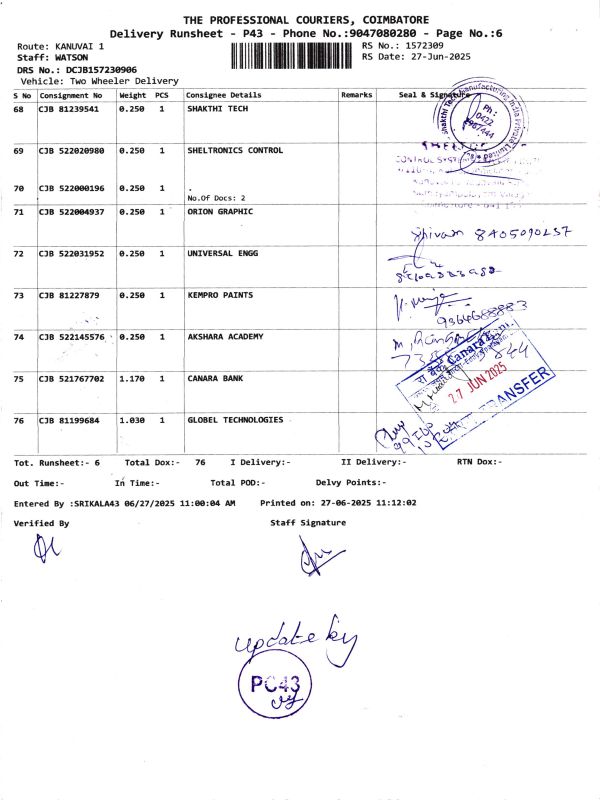 THE PROFESSIONAL COURIERS, COIMBATORE
Delivery Runsheet - P43 - Phone No.:9047080280 - Page No.:6
Route: KANUVAI 1
RS No.: 1572309
Staff: WATSON
RS Date: 27-Jun-2025
DRS No.: DCJB157230906
Vehicle: Two Wheeler Delivery
S No Consignment No Weight PCS Consignee Details Remarks Seal & Signature
68 CJB 81239541 0.250 1 SHAKTHI TECH
Shakthi Tech Manufacturing India Private Limited
Ph :
0422
69 CJB 522020980 0.250 1 SHELTRONICS CONTROL
CONTROL SYSTEMS
70 CJB 522000196 0.250 1 .
No.Of Docs: 2
71 CJB 522004937 0.250 1 ORION GRAPHIC
Shivam 8405090257
72 CJB 522031952 0.250 1 UNIVERSAL ENGG
73 CJB 81227879 0.250 1 KEMPRO PAINTS
74 CJB 522145576 0.250 1 AKSHARA ACADEMY
75 CJB 521767702 1.170 1 CANARA BANK
Canara Bank
27 JUN 2025
TRANSFER
76 CJB 81199684 1.030 1 GLOBEL TECHNOLOGIES
Tot. Runsheet:- 6 Total Dox:- 76 I Delivery:- II Delivery:- RTN Dox:-
Out Time:- In Time:- Total POD:- Delvy Points:-
Entered By :SRIKALA43 06/27/2025 11:00:04 AM Printed on: 27-06-2025 11:12:02
Verified By Staff Signature
update by
PC43